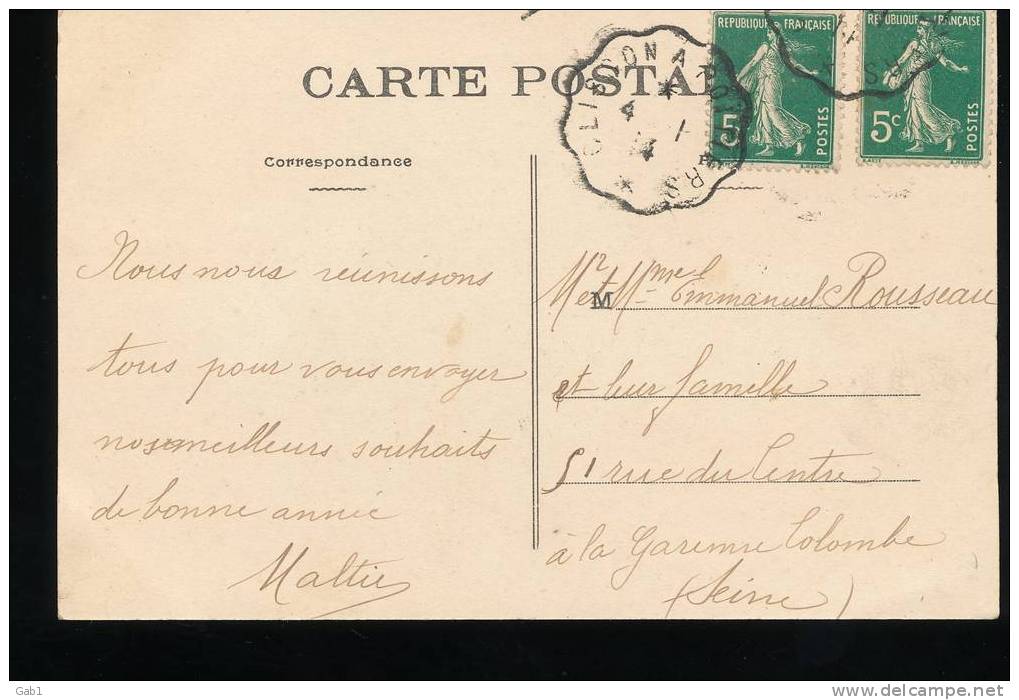 CARTE POSTA
Correspondance
RÉPUBLIQUE FRANÇAISE
5
POSTES
RÉPUBLIQUE FRANÇAISE
5c
POSTES
CLISSON A POITIERS
4
1
14
Nous nous réunissons
tous pour vous envoyer
nos meilleurs souhaits
de bonne année
M
Mr et Mme Emmanuel Rousseau
et leur famille
51 rue du Centre
à la Garenne Colombe
(Seine)
Gab1
delcampe.net